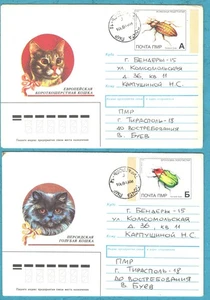 ПОЧТА ПМР
А
г. БЕНДЕРЫ-15
УЛ КОМСОМОЛЬСКАЯ
Д. 36, КВ 11
КАРПУШИНОЙ Н.С.
ЕВРОПЕЙСКАЯ
КОРОТКОШЕРСТНАЯ КОШКА
ПМР
Г. ТИРАСПОЛЬ-18
ДО ВОСТРЕБОВАНИЯ
В. БУЕВ
ПОЧТА ПМР
Б
г. БЕНДЕРЫ-15
УЛ КОМСОМОЛЬСКАЯ
Д. 36, КВ 11
КАРПУШИНОЙ Н.С.
ПЕРСИДСКАЯ
ГОЛУБАЯ КОШКА
ПМР
Г. ТИРАСПОЛЬ-18
ДО ВОСТРЕБОВАНИЯ
В. БУЕВ